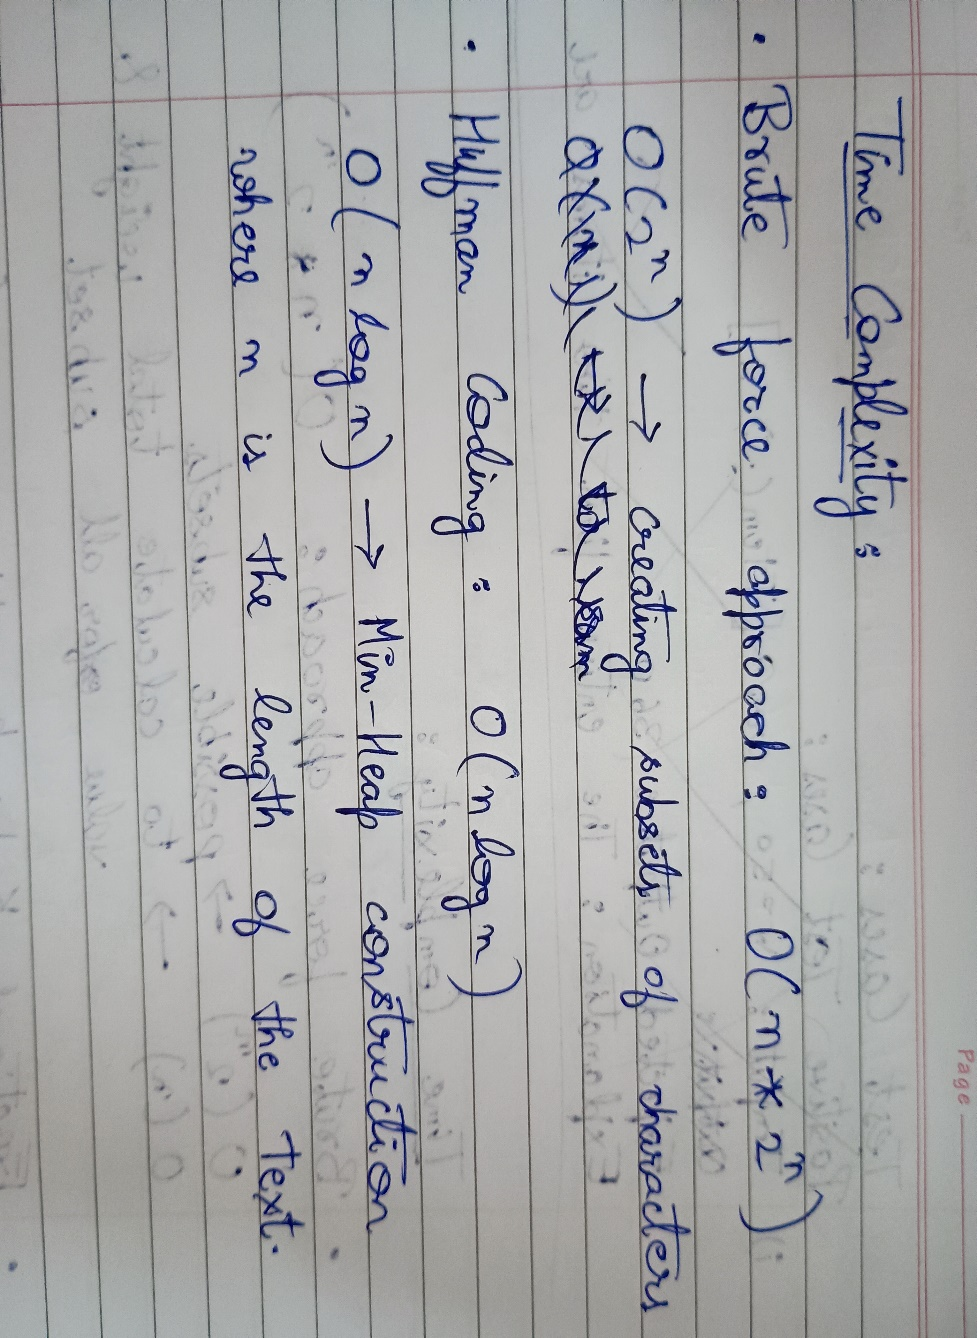 Page
Time Complexity:
• Brute force approach: O(n * 2ⁿ)
O(2ⁿ) → creating subsets of characters
• Huffman Coding: O(n log n)
O(n log n) → Min-Heap construction
where n is the length of the text.